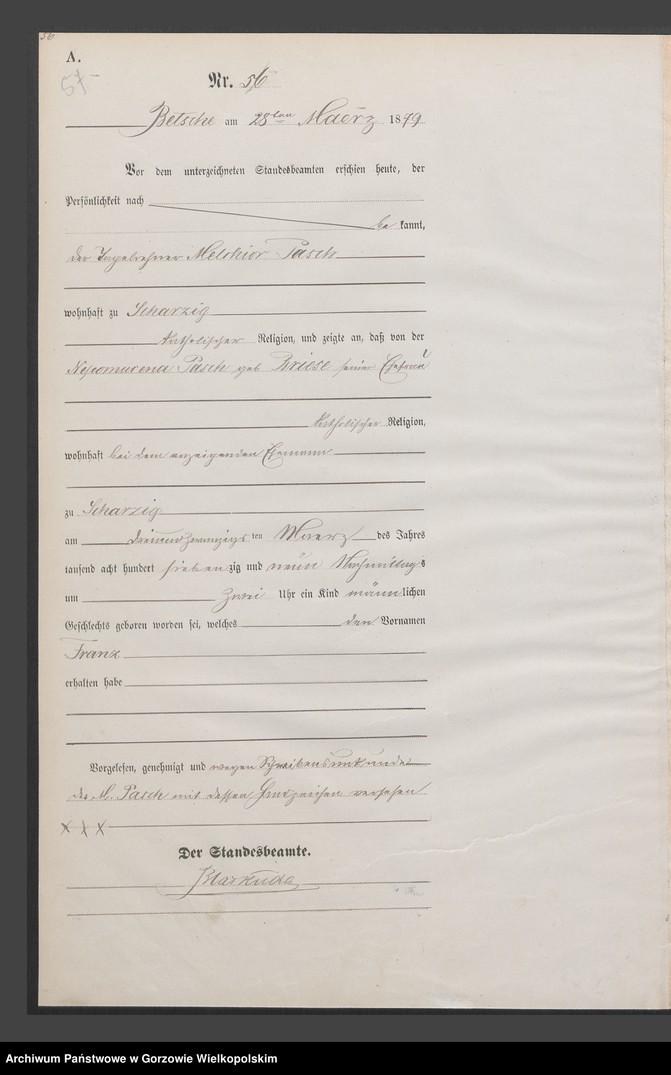 56
A.
57
Nr. 56
Betsche am 28ten Maerz 1879
Vor dem unterzeichneten Standesbeamten erschien heute, der
Persönlichkeit nach
be kannt,
der Tagelöhner Melchior Pasch
wohnhaft zu Scharzig
katholischer Religion, und zeigte an, daß von der
Nepomucena Pasch geb Briese seiner Ehefrau
katholischer Religion,
wohnhaft bei dem anzeigenden Ehemann
zu Scharzig
am dreiundzwanzigs ten Maerz des Jahres
tausend acht hundert siebenzig und neun Nachmittags
um zwei Uhr ein Kind männlichen
Geschlechts geboren worden sei, welches den Vornamen
Franz
erhalten habe
Vorgelesen, genehmigt und wegen Schreibensunkunde
des M. Pasch mit dessen Handzeichen versehen
x x x
Der Standesbeamte.
Archiwum Państwowe w Gorzowie Wielkopolskim